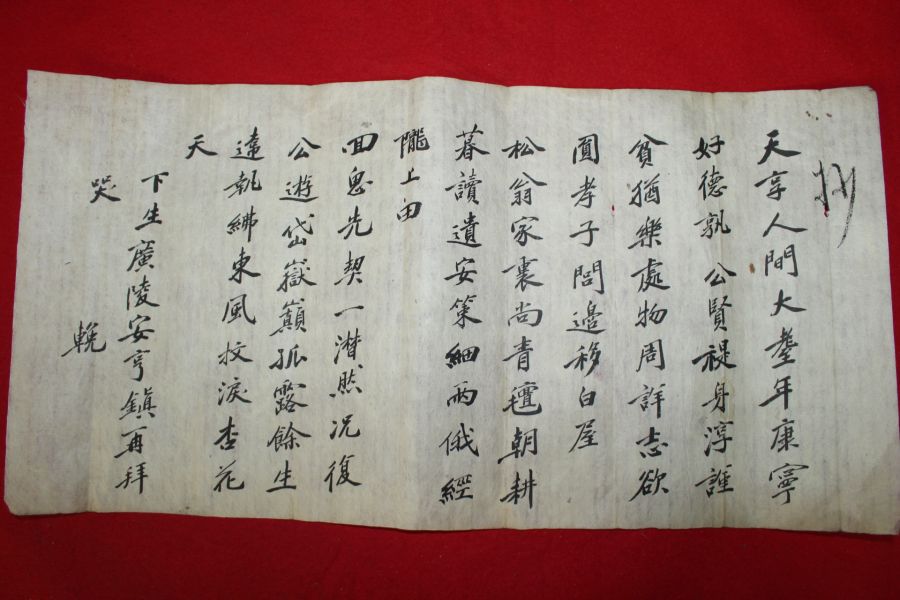 天享人間大耋年康寧
好德孰 公賢禔身淳謹
貧猶樂處物周詳志欲
圓孝子問邊移白屋
松翁家裏尚青氊朝耕
暮讀遺安策細雨俄經
隴上田
回思先契一潸然况復
公遊岱嶽巔孤露餘生
違執紼東風抆淚杏花
天
下生廣陵安亨鎭再拜
哭 輓